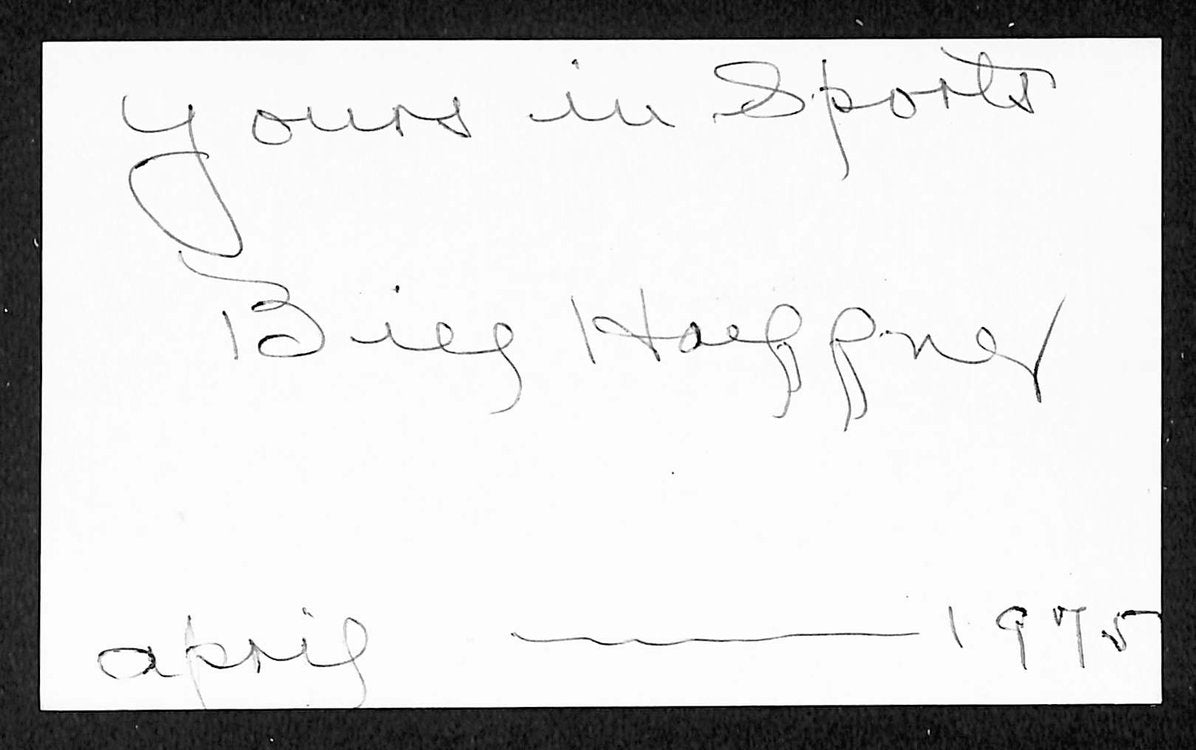 yours in Sports
Bill Haeffner
april — 1975